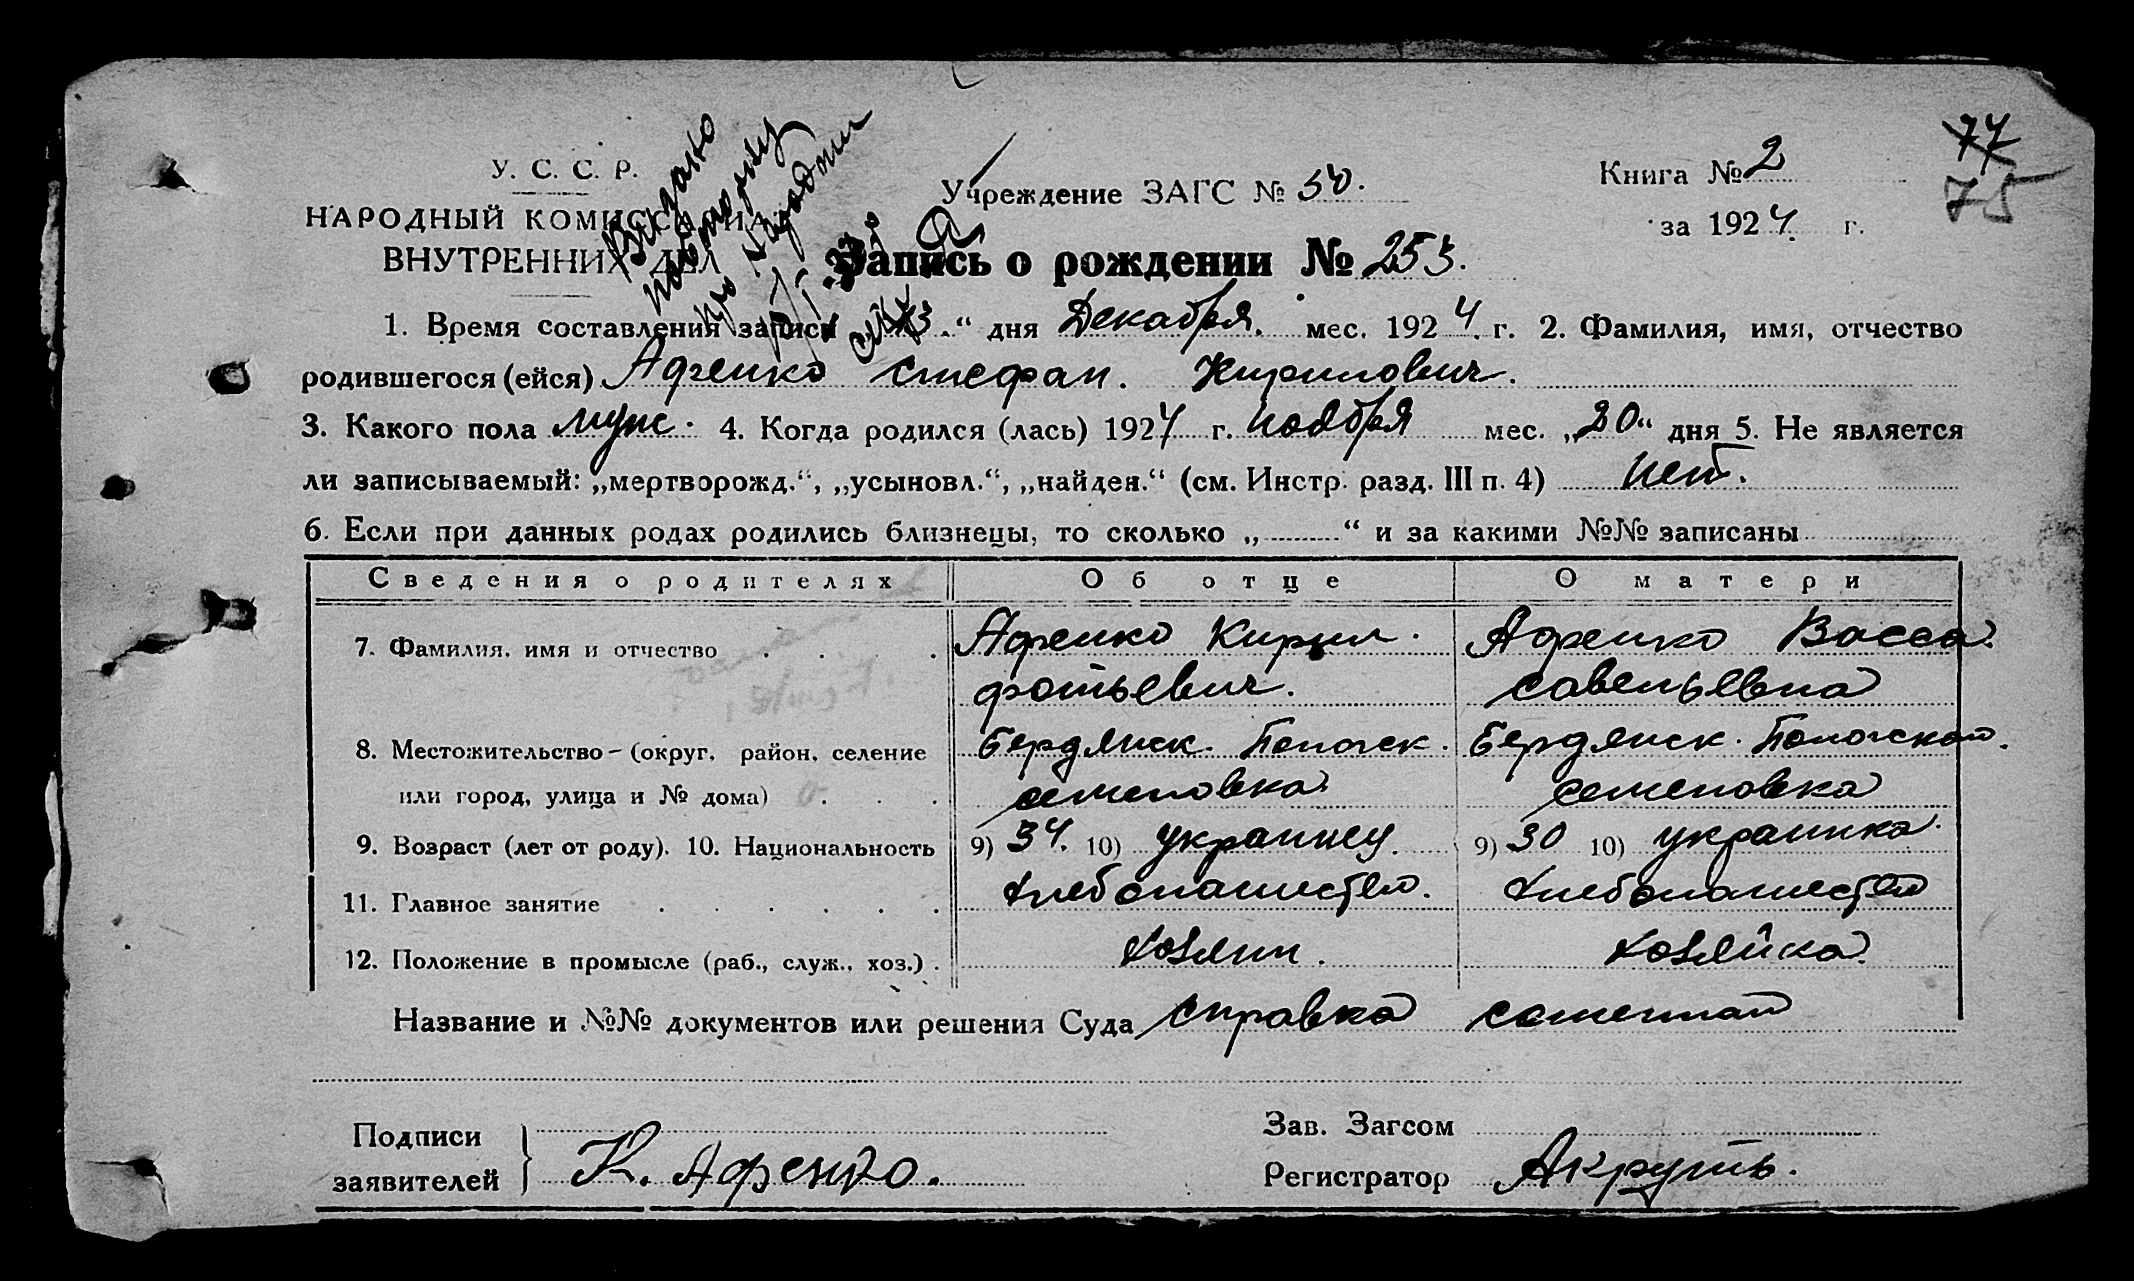 77
75
У. С. С. Р.
НАРОДНЫЙ КОМИССАРИАТ
ВНУТРЕННИХ ДЕЛ
Выдано
повторну
про народж
Учреждение ЗАГС № 50.
Книга № 2
за 1924 г.
Запись о рождении № 253.
1. Время составления записи „ 13 “ дня Декабря. мес. 1924 г. 2. Фамилия, имя, отчество
родившегося (ейся) Афенко Стефан. Кирилович.
3. Какого пола муж. 4. Когда родился (лась) 1924 г. ноября мес. „20“ дня 5. Не является
ли записываемый: „мертворожд.“, „усыновл.“, „найден.“ (см. Инстр. разд. III п. 4) нет.
6. Если при данных родах родились близнецы, то сколько „ “ и за какими №№ записаны
Сведения о родителях Об отце О матери
7. Фамилия, имя и отчество Афенко Кирил Афенко Васса
фотьевич. савельевна
8. Местожительство – (округ, район, селение Бердянск. Пологск. Бердянск. Пологской.
или город, улица и № дома) семеновка семеновка
9. Возраст (лет от роду). 10. Национальность 9) 34. 10) украинец. 9) 30 10) украинка.
11. Главное занятие хлебопашество. хлебопашество
12. Положение в промысле (раб., служ., хоз.) хозяин. хозяйка.
Название и №№ документов или решения Суда справка
Подписи
заявителей К. Афенко.
Зав. Загсом
Регистратор Акруть.